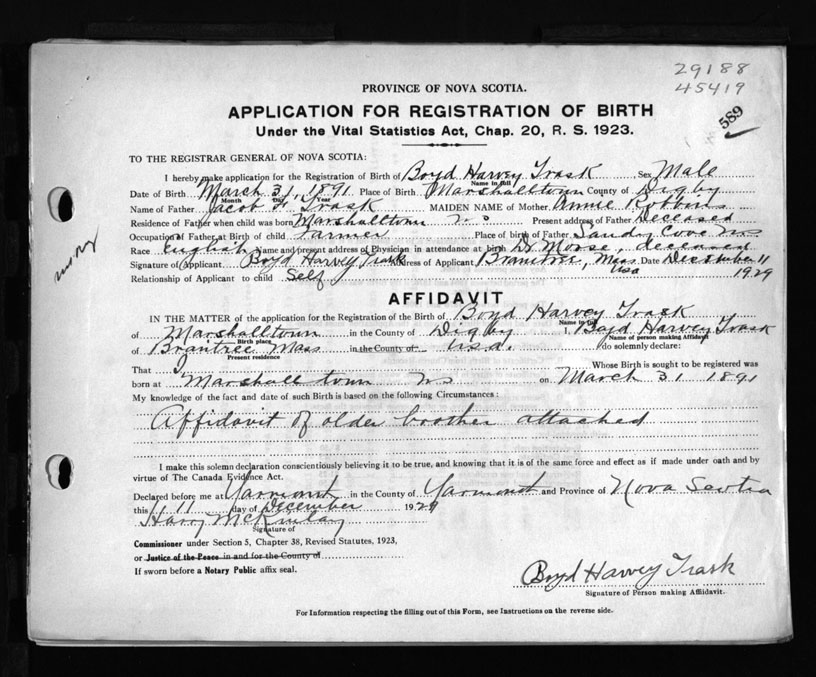 29188
45419
589
PROVINCE OF NOVA SCOTIA.
APPLICATION FOR REGISTRATION OF BIRTH
Under the Vital Statistics Act, Chap. 20, R. S. 1923.
TO THE REGISTRAR GENERAL OF NOVA SCOTIA:
I hereby make application for the Registration of Birth of Boyd Harvey Trask Sex Male
Name in full
Date of Birth March 31, 1891 Place of Birth Marshalltown County of Digby
Month Day Year
Name of Father Jacob H Trask MAIDEN NAME of Mother Annie Robbins
Residence of Father when child was born Marshalltown NS Present address of Father Deceased
Occupation of Father at Birth of child Farmer Place of birth of Father Sandy Cove NS
Race English Name and present address of Physician in attendance at birth Dr Moose, deceased
Signature of Applicant Boyd Harvey Trask Address of Applicant Braintree, Mass Usa Date December 11 1929
Relationship of Applicant to child Self
AFFIDAVIT
IN THE MATTER of the application for the Registration of the Birth of Boyd Harvey Trask
Name in full
of Marshalltown in the County of Digby I, Boyd Harvey Trask
Birth place Name of person making Affidavit
of Braintree Mass in the County of Usa. do solemnly declare:
Present residence
That I Whose Birth is sought to be registered was
born at Marshalltown NS on March 31 1891
My knowledge of the fact and date of such Birth is based on the following Circumstances:
Affidavit of older brother attached
I make this solemn declaration conscientiously believing it to be true, and knowing that it is of the same force and effect as if made under oath and by
virtue of The Canada Evidence Act.
Declared before me at Yarmouth in the County of Yarmouth and Province of Nova Scotia
this 11 day of December 1929
Harry McKinlay
Signature of
Commissioner under Section 5, Chapter 38, Revised Statutes, 1923,
or Justice of the Peace in and for the County of
If sworn before a Notary Public affix seal.
Boyd Harvey Trask
Signature of Person making Affidavit.
For Information respecting the filling out of this Form, see Instructions on the reverse side.